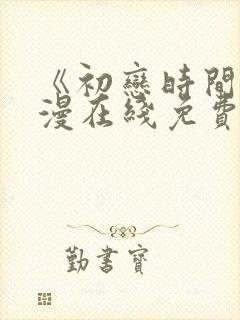 《初戀時間
漫在綫免費
勤書寶